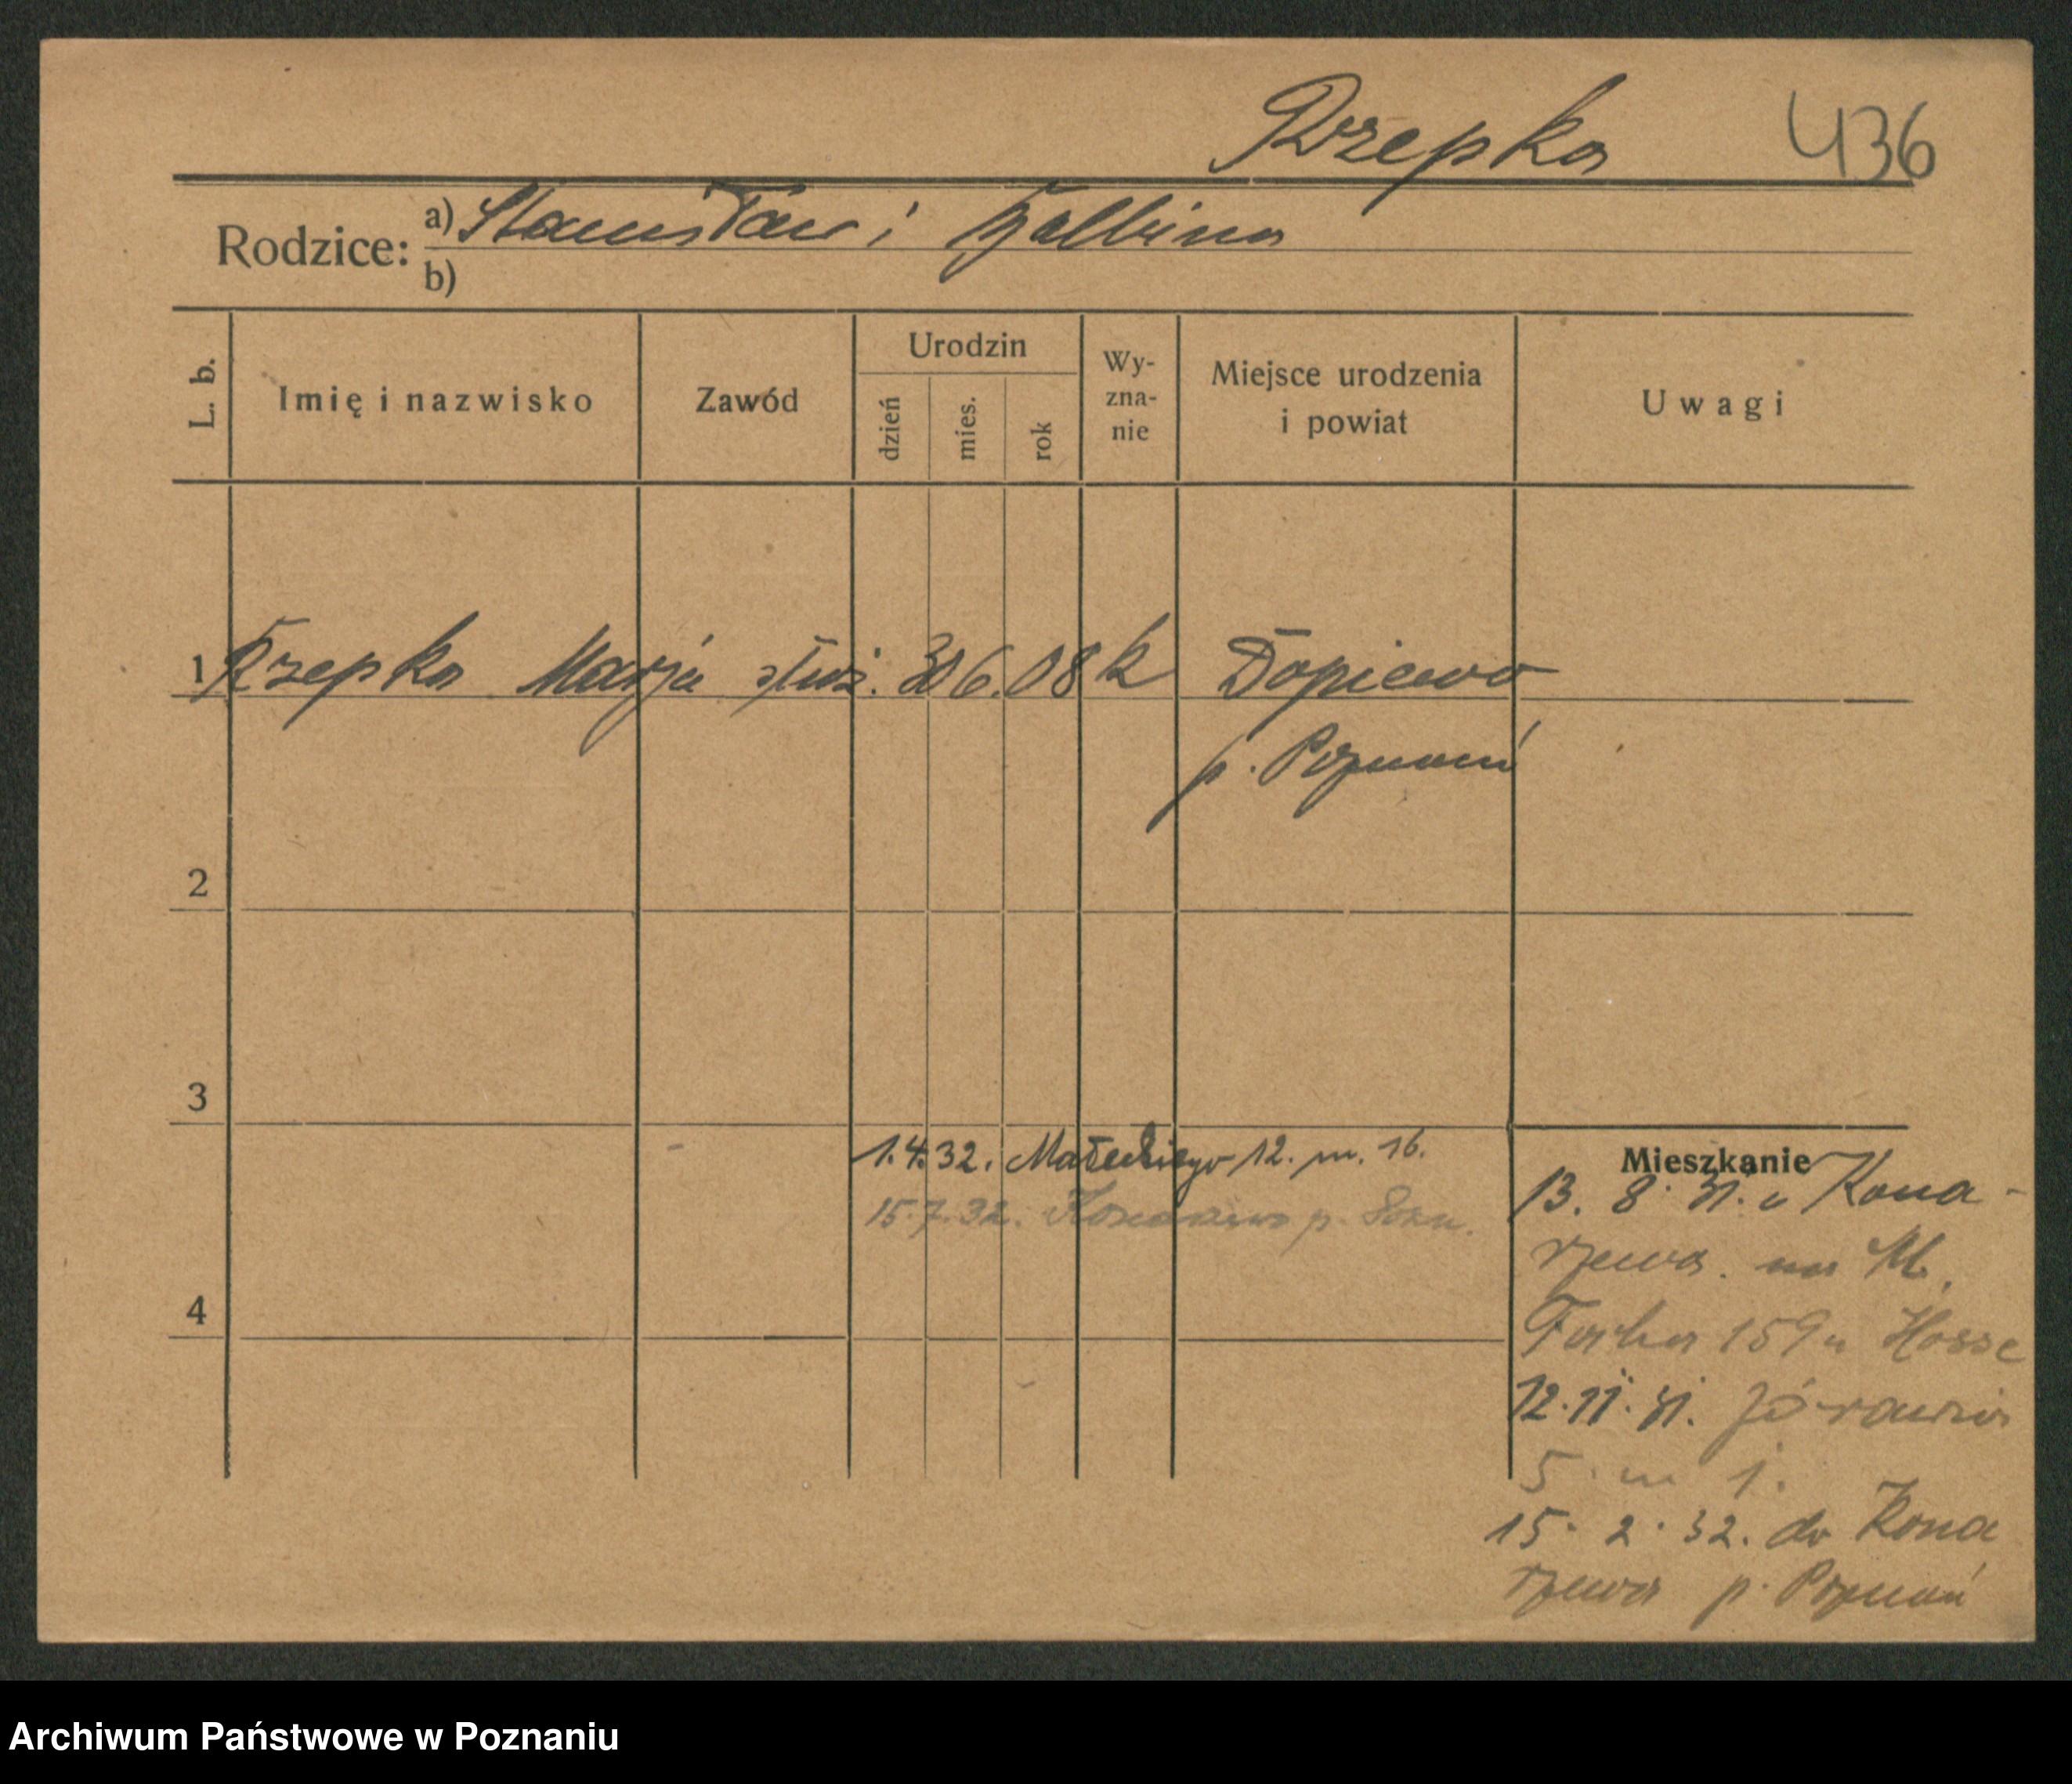 Rzepka 436
Rodzice: a) Stanisław i Balbina
b)
L. b. Imię i nazwisko Zawód Urodzin dzień mies. rok Wy-zna-nie Miejsce urodzenia i powiat Uwagi
1 Rzepka Marja służ. 30 6. 08 k Dopiewo
p. Poznań
2
3
1.4.32. Małeckiego 12. m. 16.
15.7.32. Konarzewo p. Pozn.
4
Mieszkanie
13. 8. 31. z Kona-
rzewa. na M.
Focha 159 u Hosse
12.11.31. Żórawia
5 m 1.
15. 2. 32. do Kona
rzewa p. Poznań
Archiwum Państwowe w Poznaniu